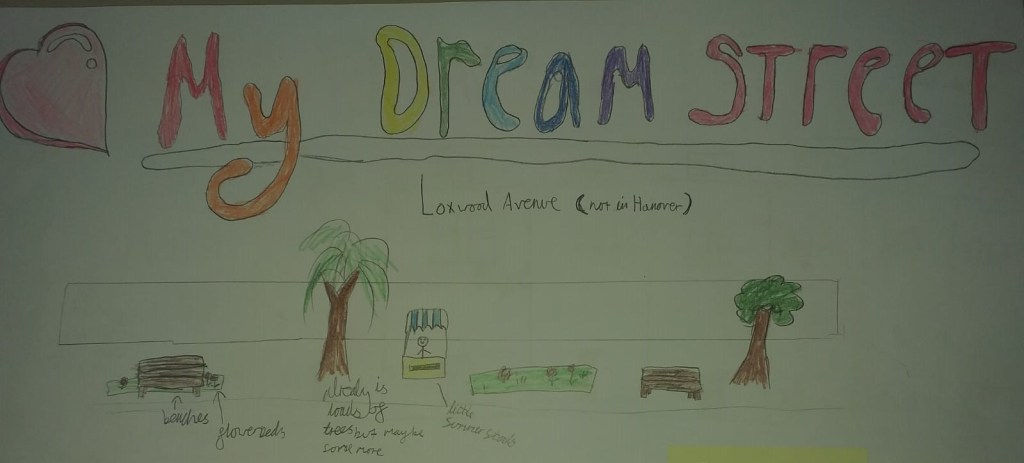 My Dream Street
Loxwood Avenue (not in Hanover)
benches
flowerbeds
already is
loads of
trees but maybe
some more
little
summer stools